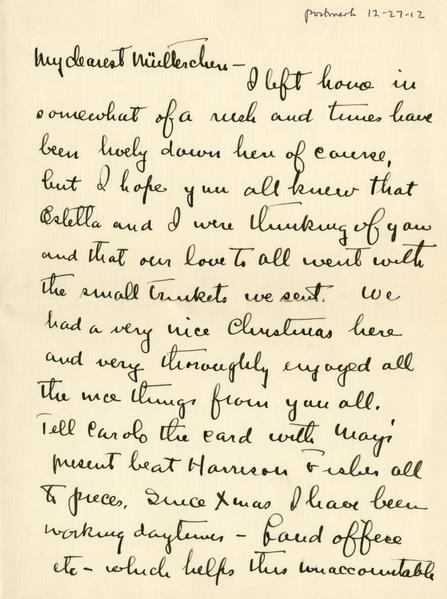 postmark 12-27-12
My dearest Mütterchen —
I left home in
somewhat of a rush and times have
been lively down here of course,
but I hope you all knew that
Estella and I were thinking of you
and that our love to all went with
the small trinkets we sent. We
had a very nice Christmas here
and very thoroughly enjoyed all
the nice things from you all.
Tell Carolo the card with May's
present beat Harrison Fisher all
to pieces. Since Xmas I have been
working daytimes — Land office
etc — which helps this unaccountable